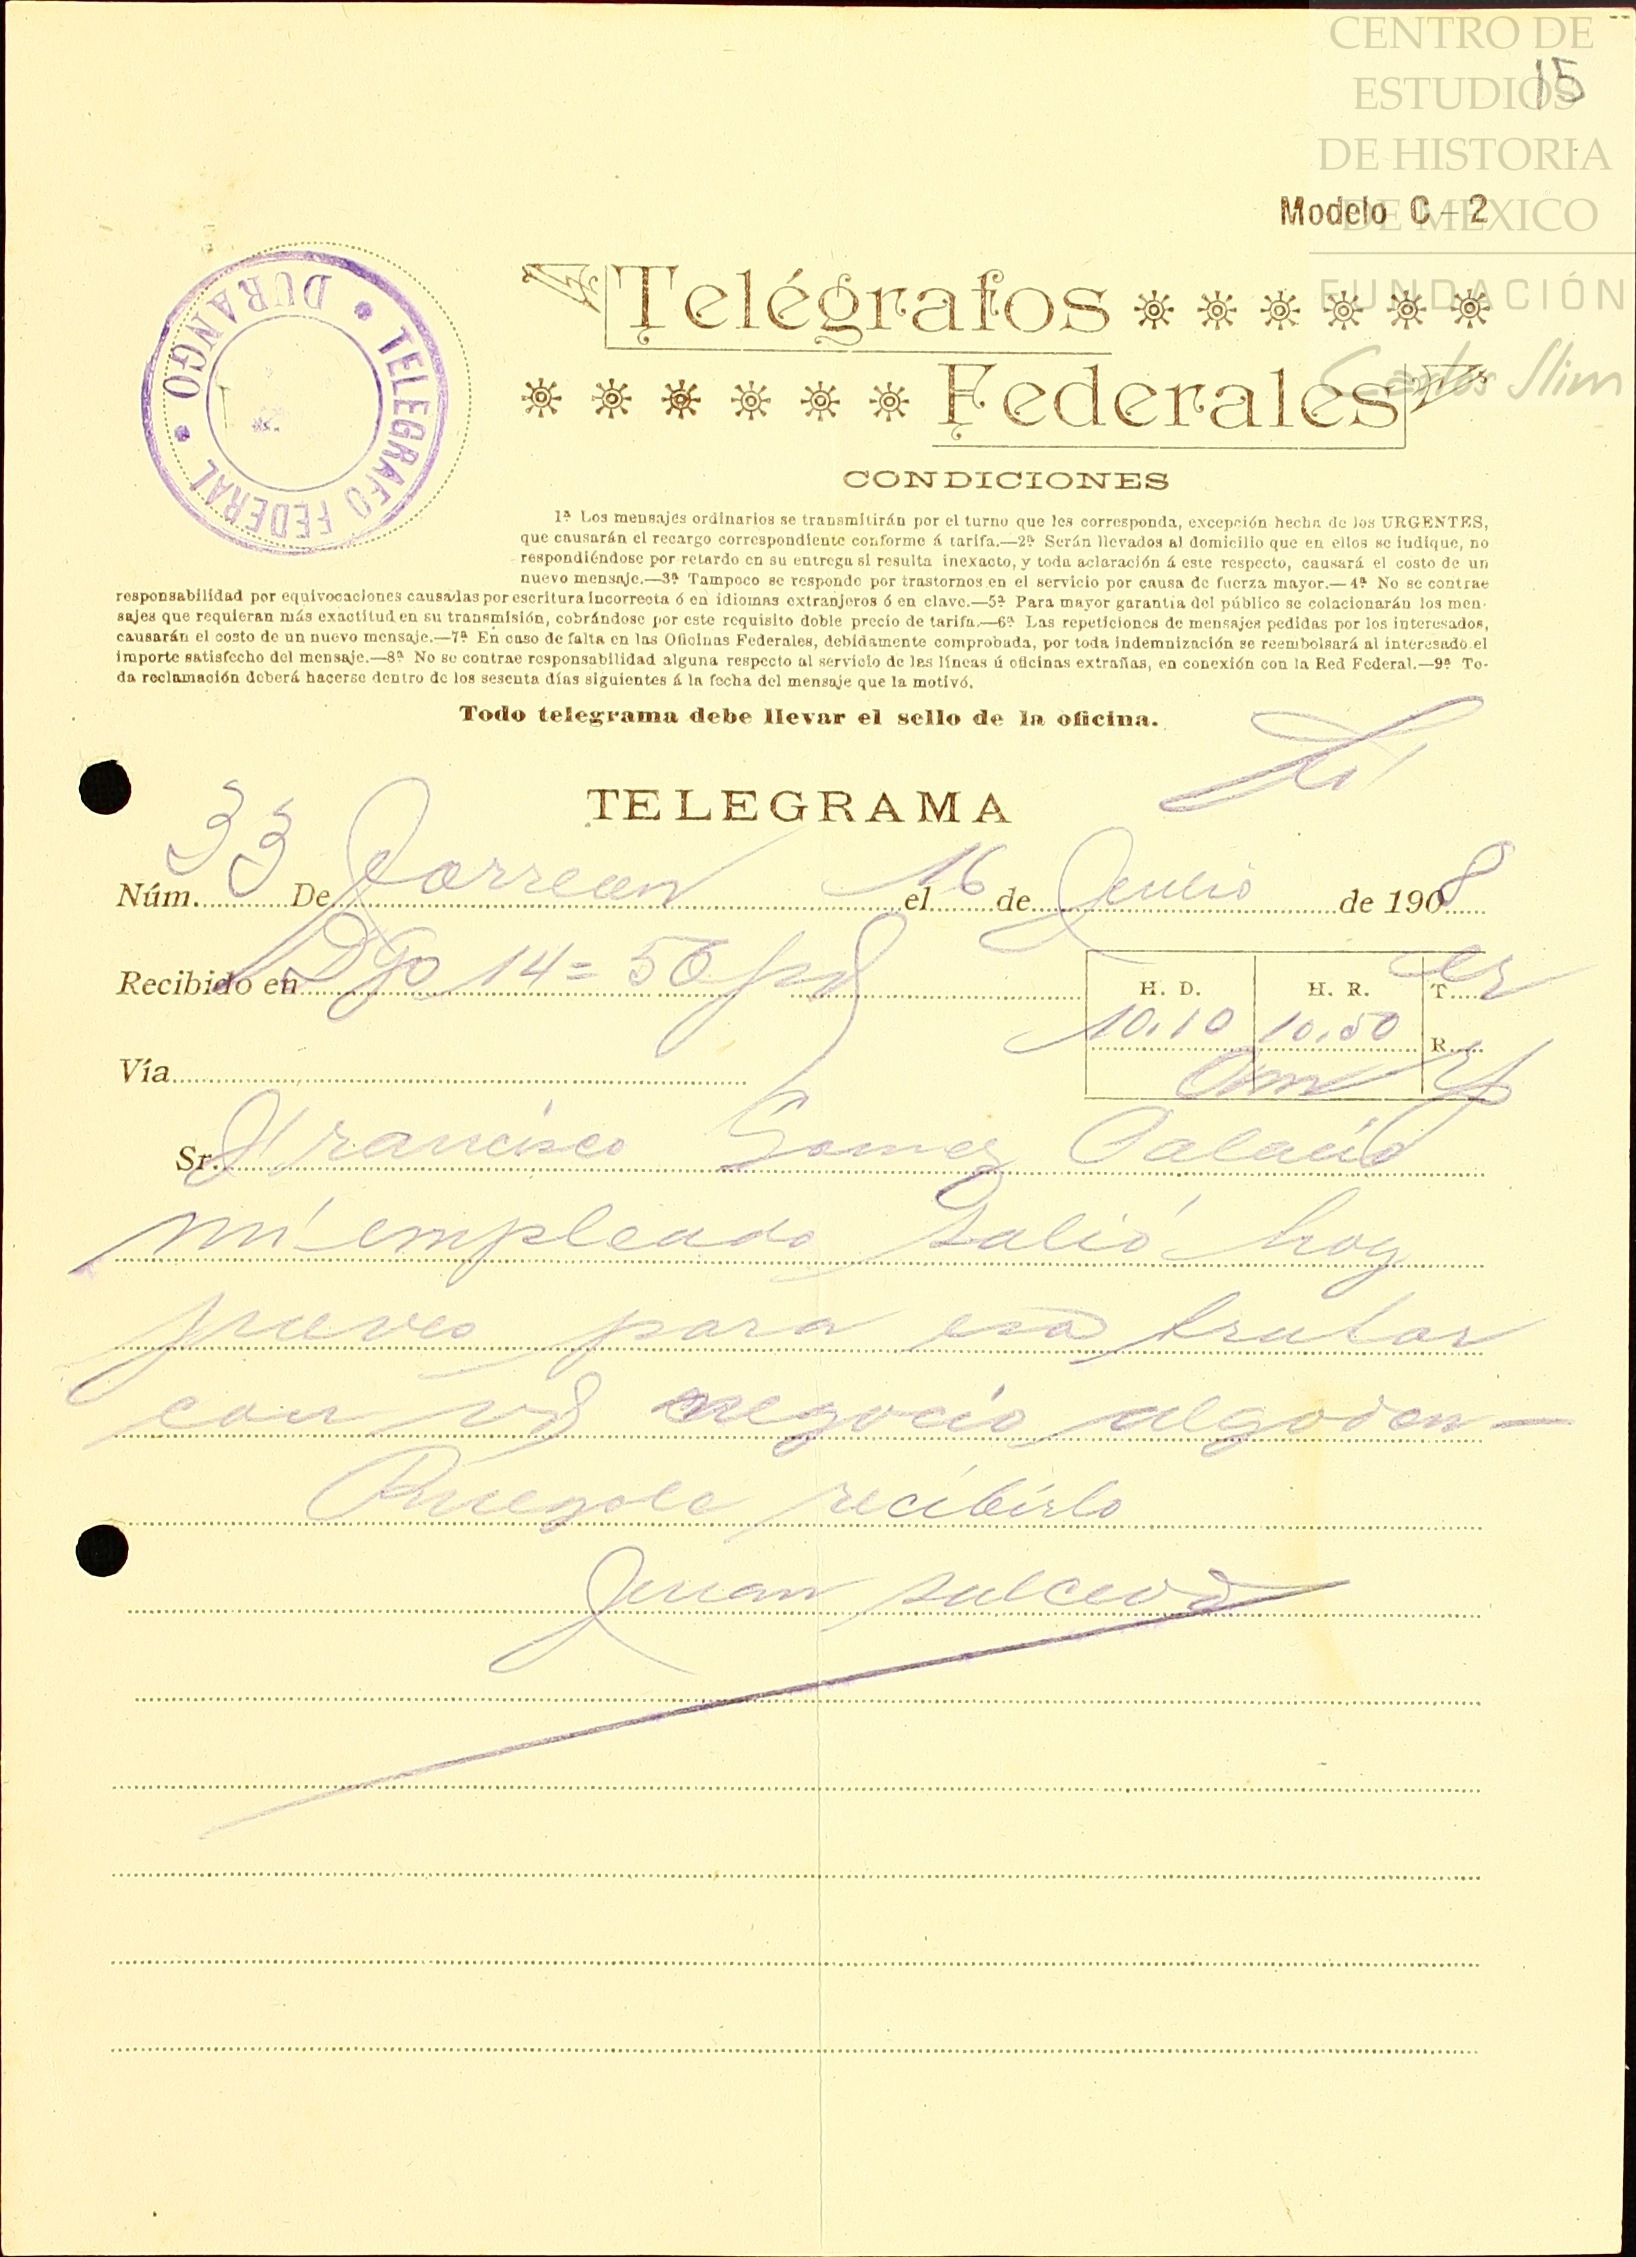 CENTRO DE
ESTUDIOS
DE HISTORIA
DE MEXICO
FUNDACIÓN
Carlos Slim
15
Modelo C-2
TELEGRAFO FEDERAL • DURANGO •
Telégrafos
Federales
CONDICIONES
1ª Los mensajes ordinarios se transmitirán por el turno que les corresponda, excepción hecha de los URGENTES,
que causarán el recargo correspondiente conforme á tarifa.—2ª Serán llevados al domicilio que en ellos se indique, no
respondiéndose por retardo en su entrega si resulta inexacto, y toda aclaración á este respecto, causará el costo de un
nuevo mensaje.—3ª Tampoco se responde por trastornos en el servicio por causa de fuerza mayor.—4ª No se contrae
responsabilidad por equivocaciones causadas por escritura incorrecta ó en idiomas extranjeros ó en clave.—5ª Para mayor garantía del público se colacionarán los men-
sajes que requieran más exactitud en su transmisión, cobrándose por este requisito doble precio de tarifa.—6ª Las repeticiones de mensajes pedidas por los interesados,
causarán el costo de un nuevo mensaje.—7ª En caso de falta en las Oficinas Federales, debidamente comprobada, por toda indemnización se reembolsará al interesado el
importe satisfecho del mensaje.—8ª No se contrae responsabilidad alguna respecto al servicio de las líneas ú oficinas extrañas, en conexión con la Red Federal.—9ª To-
da reclamación deberá hacerse dentro de los sesenta días siguientes á la fecha del mensaje que la motivó.
Todo telegrama debe llevar el sello de la oficina.
TELEGRAMA
Núm. 33 De Torreon el 16 de Julio de 1908
Recibido en Dgo 14=50 pd
H. D. H. R. T.
10.10 10.50 R.
Vía
Sr. Francisco Gomez Palacio
mi empleado salió hoy
jueves para esa tratar
con vd negocio algodon—
Ruegole recibirlo
Juan Salcedo